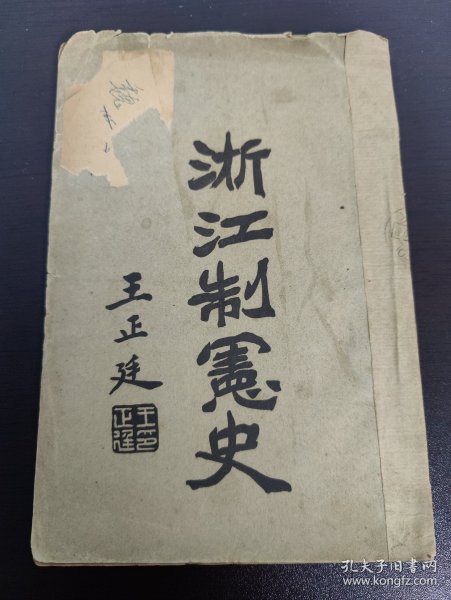 浙江制憲史
王正廷
王正廷印
孔夫子旧书网
www.kongfz.com